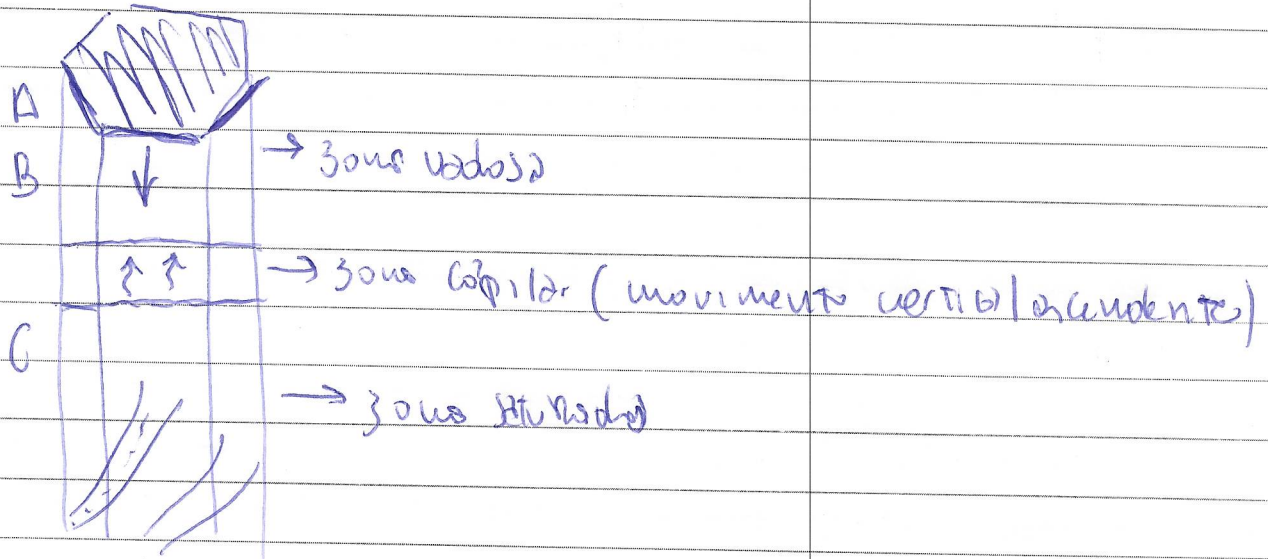 A
→ zona vadosa
B
→ zona cápilar (movimento vertical ascendente)
C
→ zona saturada